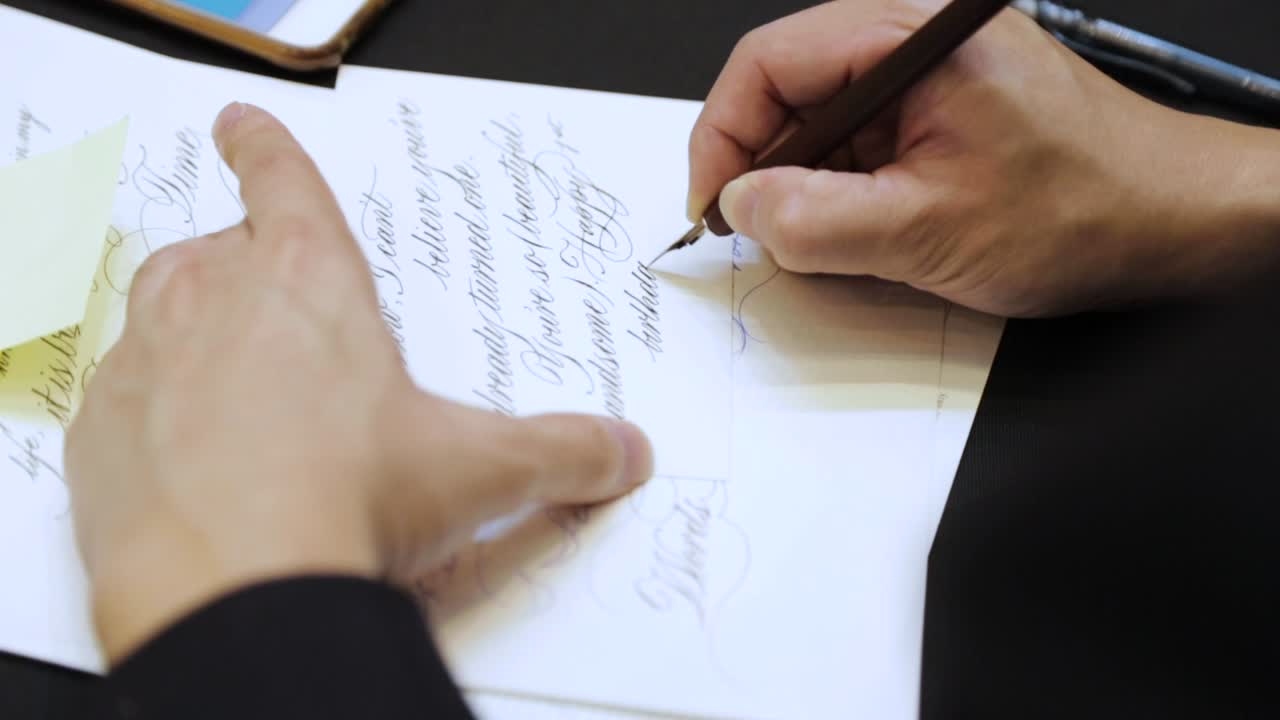 my
Time
life.
it is
I can't
believe you're
lready turned one.
You're so (beautiful,
andsome)! Happy
birthda
Words